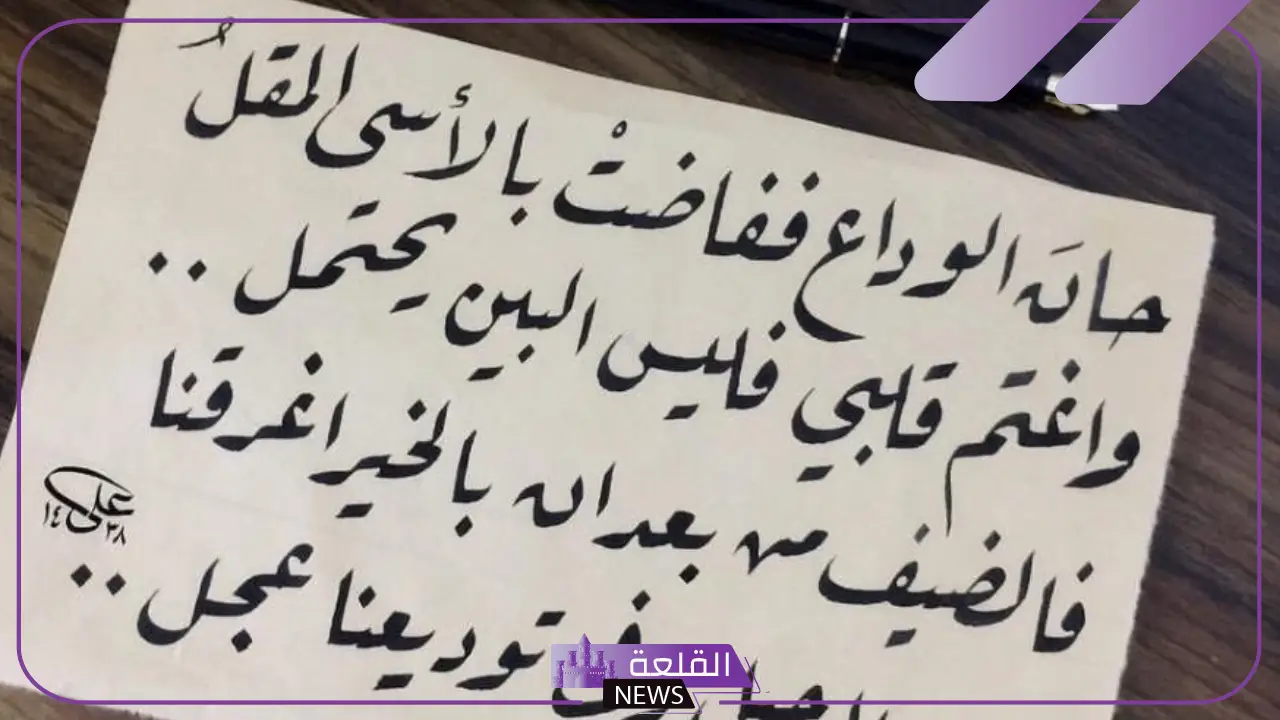 حانَ الوداع ففاضتْ بالأسى المقلُ
واغتم قلبي فليس البين يحتمل ..
فالضيف من بعد ان بالخير اغرقنا
في توديعنا عجل ..
علي
١٤٣٨
القلعة
NEWS